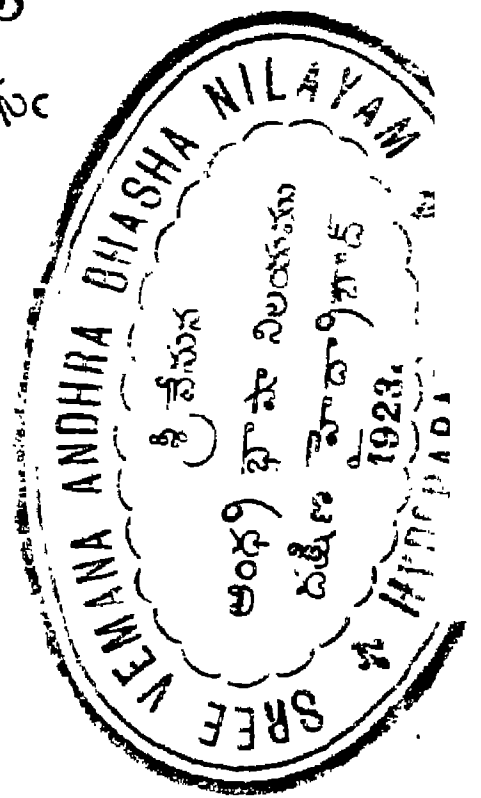 SREE VEMANA ANDHRA BHASHA NILAYAM
శ్రీ వేమన
ఆంధ్ర భాషా నిలయము
దక్షిణ హైద్రాబాద్
1923.